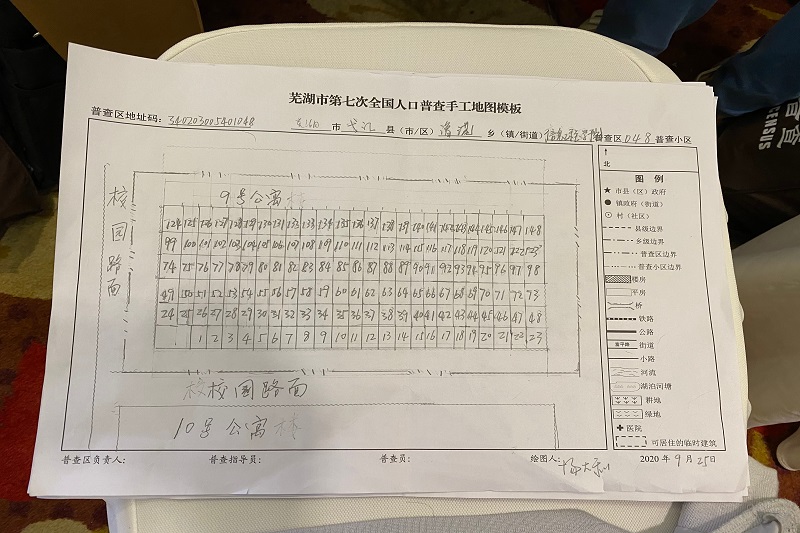 芜湖市第七次全国人口普查手工地图模板
普查区地址码：340203005401048 芜湖 市 弋江 县（市/区） 乡（镇/街道） 普查区 048 普查小区
北
图 例
市县（区）政府
镇政府（街道）
村（社区）
县级边界
乡级边界
普查区边界
普查小区边界
楼房
平房
桥
铁路
公路
街道
小路
河流
湖泊河塘
耕地
绿地
医院
可居住的临时建筑
校园路面
9号公寓楼
124 125 126 127 128 129 130 131 132 133 134 135 136 137 138 139 140 141 142 143 144 145 146 147 148
99 100 101 102 103 104 105 106 107 108 109 110 111 112 113 114 115 116 117 118 119 120 121 122 123
74 75 76 77 78 79 80 81 82 83 84 85 86 87 88 89 90 91 92 93 94 95 96 97 98
49 50 51 52 53 54 55 56 57 58 59 60 61 62 63 64 65 66 67 68 69 70 71 72 73
24 25 26 27 28 29 30 31 32 33 34 35 36 37 38 39 40 41 42 43 44 45 46 47 48
1 2 3 4 5 6 7 8 9 10 11 12 13 14 15 16 17 18 19 20 21 22 23
校园路面
10号公寓楼
普查区负责人： 普查指导员： 普查员： 绘图人：
2020 年 9 月 25日
普查
CENSUS